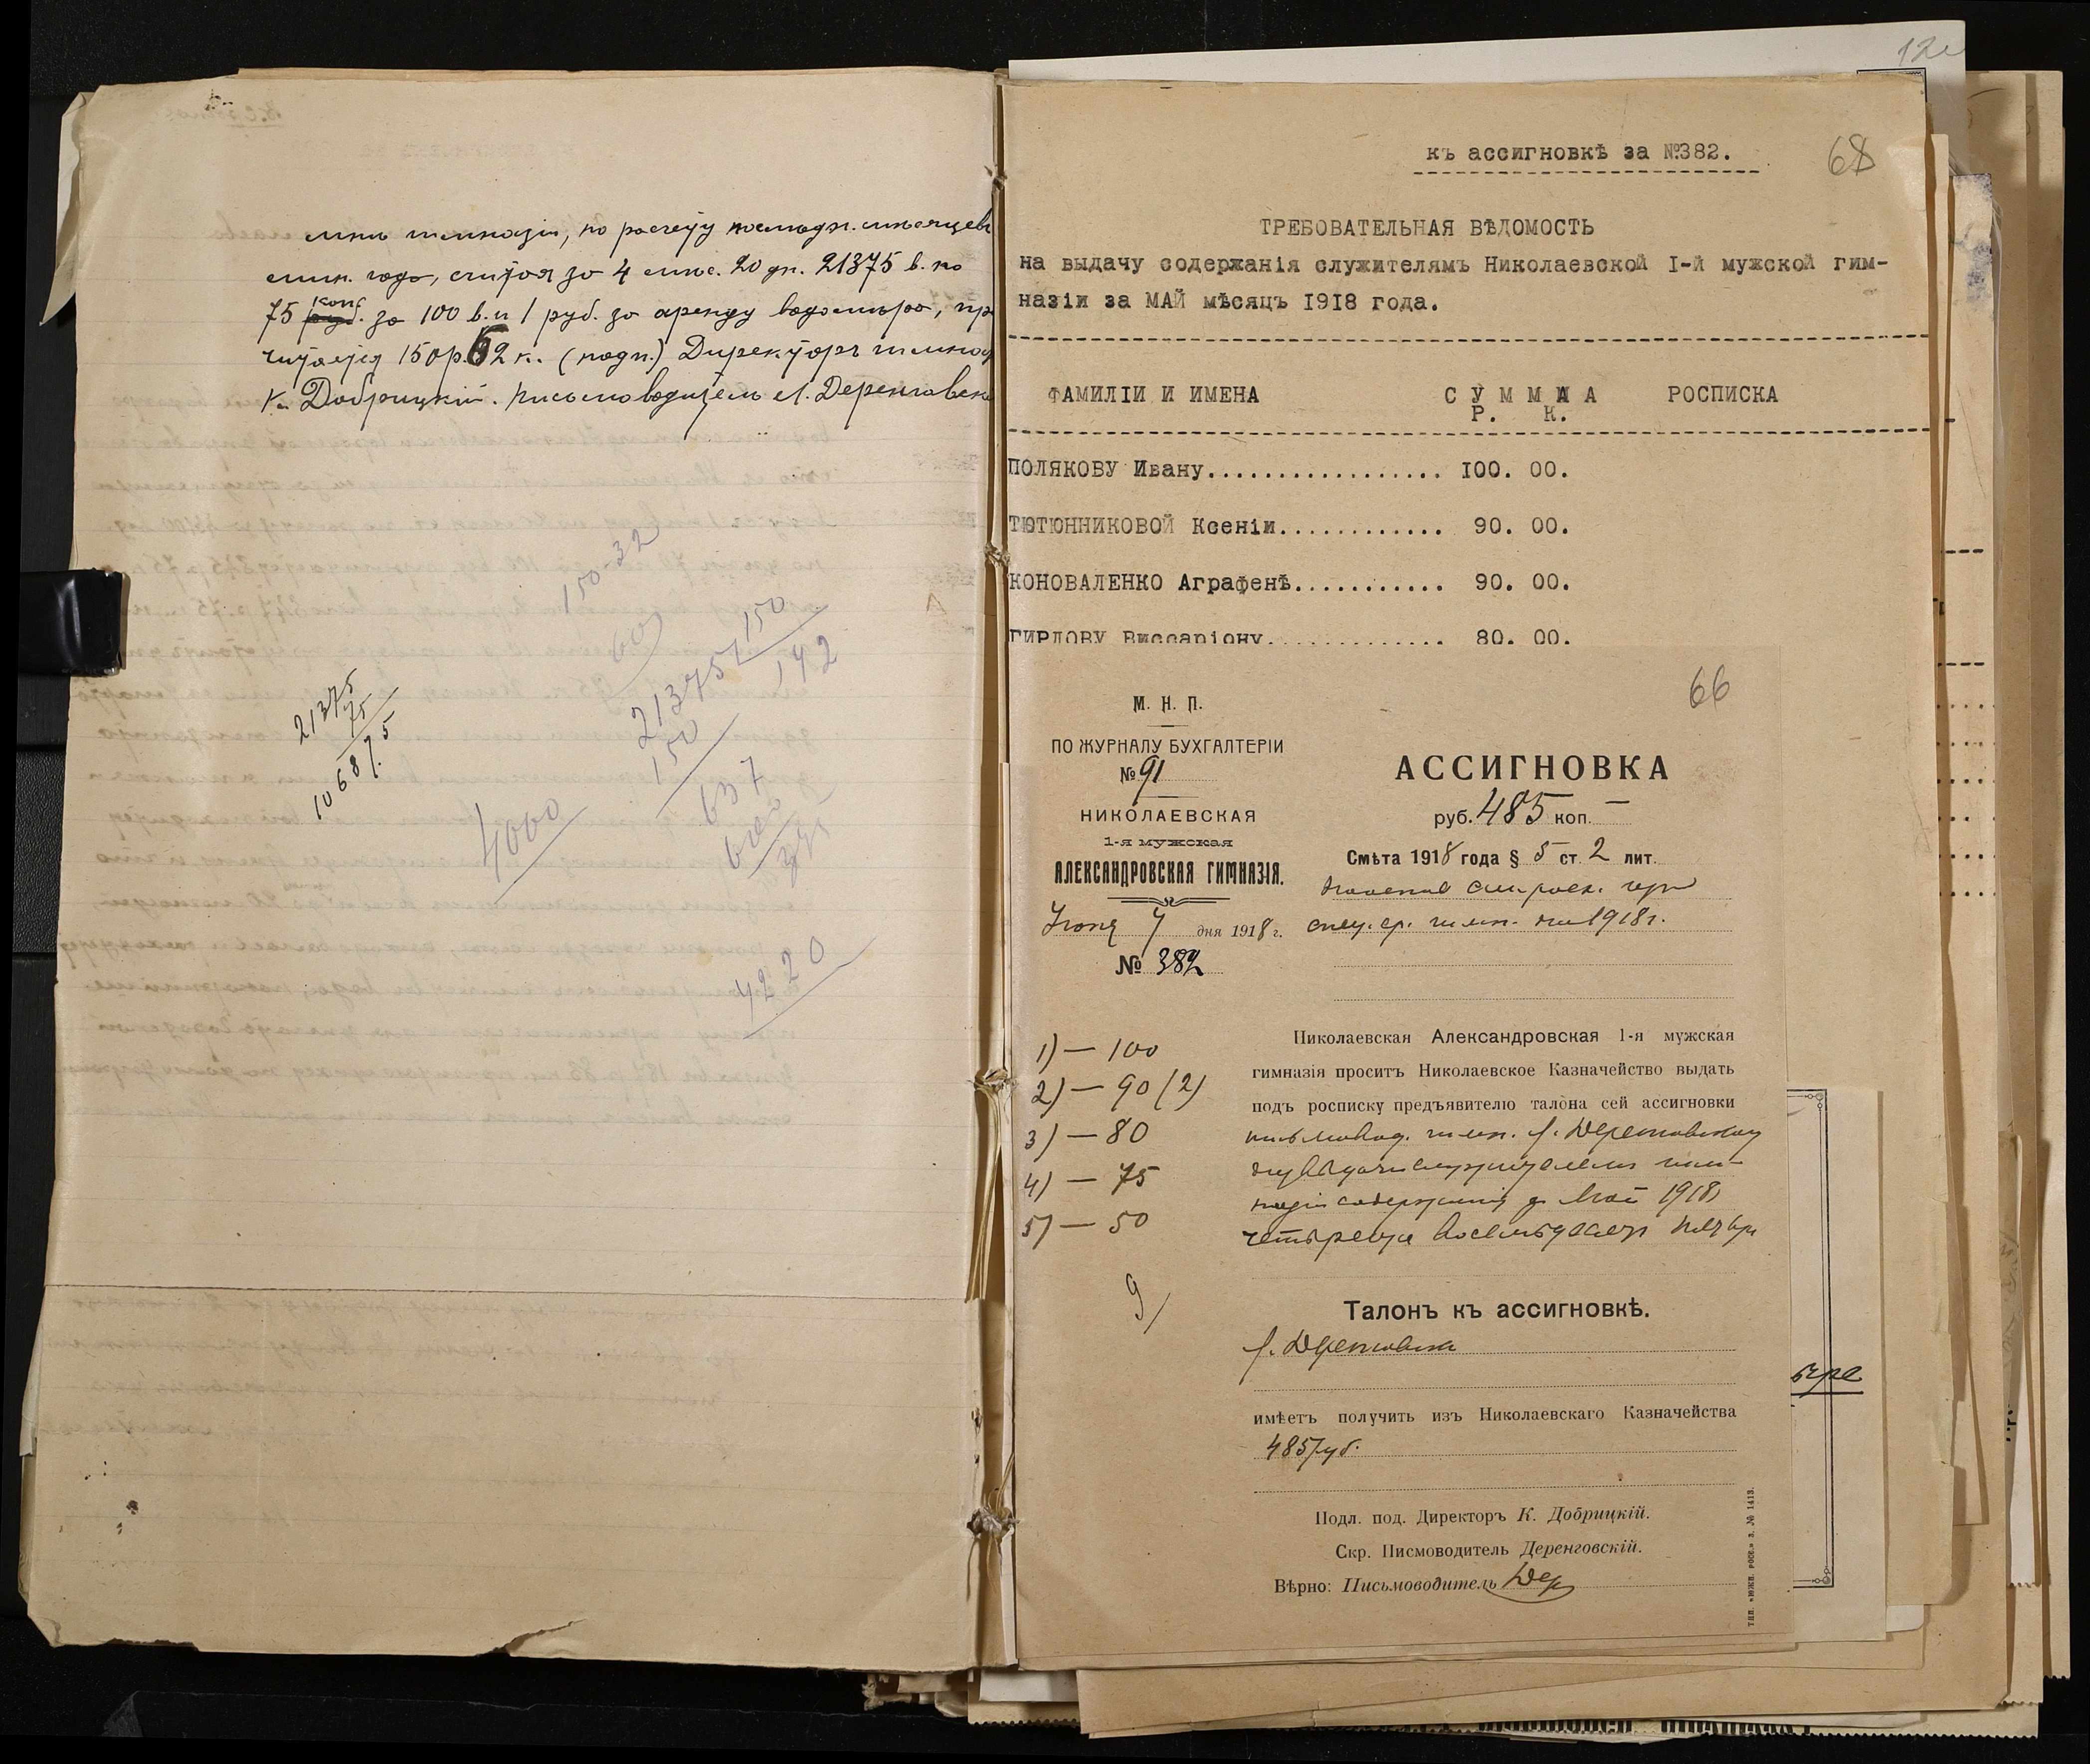 гимназіи, по расчету последн. мѣсяцевъ
мин. года, считая за 4 мѣс. 20 дн. 21375 в. по
75 коп. за 100 в. и 1 руб. за аренду водомѣра, пр
читается 150 р. 62 к. (подп.) Директоръ гимназ
К. Добрицкій. Письмоводитель Л. Деренговск
150-32
60
21375 150
150 142
637
600
375
21375
75
10687.5
4000
4220
12
68
къ ассигновкѣ за №382.
ТРЕБОВАТЕЛЬНАЯ ВѢДОМОСТЬ
на выдачу содержанія служителямъ Николаевской I-й мужской гим-
назіи за МАЙ мѣсяцъ 1918 года.
ФАМИЛІИ И ИМЕНА СУММА РОСПИСКА
Р. К.
ПОЛЯКОВУ Ивану.................. 100. 00.
ТЮТЮННИКОВОЙ Ксеніи............ 90. 00.
КОНОВАЛЕНКО Аграфенѣ........... 90. 00.
ГИРЛОВУ Виссаріону............. 80. 00.
66
М. Н. П.
ПО ЖУРНАЛУ БУХГАЛТЕРІИ
№ 91
НИКОЛАЕВСКАЯ
1-я мужская
АЛЕКСАНДРОВСКАЯ ГИМНАЗІЯ.
Іюня 7 дня 1918 г.
№ 382
1) — 100
2) — 90 (2)
3) — 80
4) — 75
5) — 50
9/
АССИГНОВКА
руб. 485 коп. —
Смѣта 1918 года § 5 ст. 2 лит.
спец. ср. гимн. на 1918 г.
Николаевская Александровская 1-я мужская
гимназія проситъ Николаевское Казначейство выдать
подъ росписку предъявителю талона сей ассигновки
письмовод. гимн. Л. Деренговскому
для выдачи служителямъ гим-
назіи содержанія за Май 1918
четыреста восемьдесятъ пять р
Талонъ къ ассигновкѣ.
Л. Деренговскій
имѣетъ получить изъ Николаевскаго Казначейства
485 руб.
Подл. под. Директоръ К. Добрицкій.
Скр. Писмоводитель Деренговскій.
Вѣрно: Письмоводитель Дер
тип. «южн. росс.» з. № 1413.